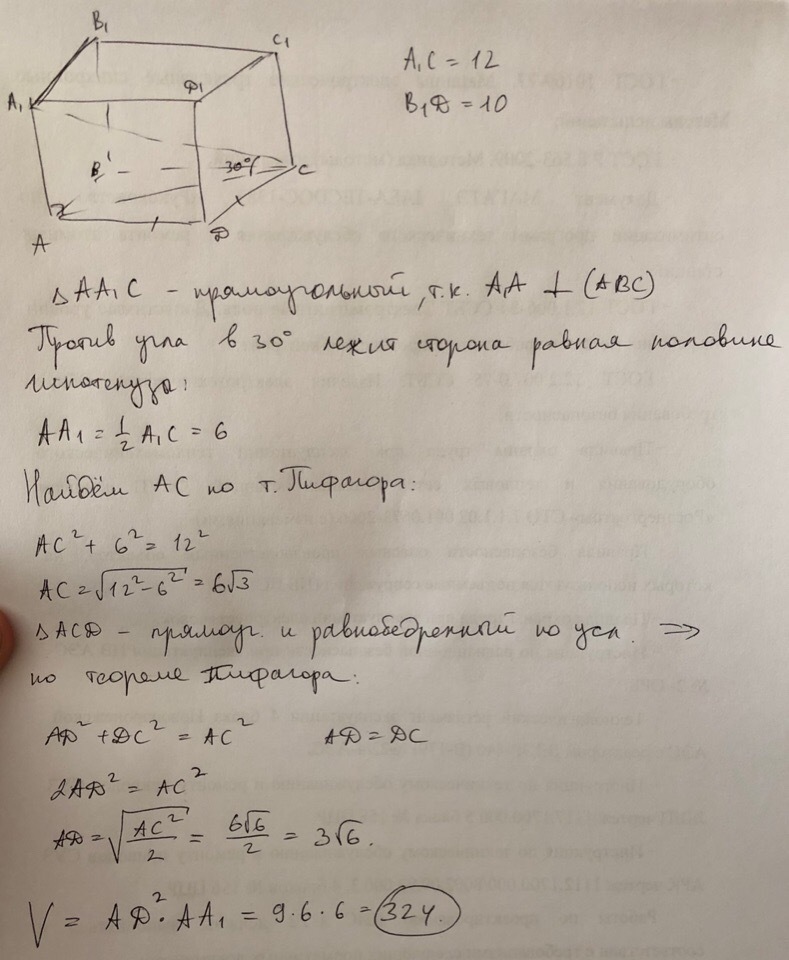 B₁
C₁
A₁C = 12
A₁
D₁
B₁D = 10
B
30°
C
A
D
△AA₁C - прямоугольный, т.к. A₁A ⊥ (ABC)
Против угла в 30° лежит сторона равная половине
гипотенузы:
AA₁ = 1/2 A₁C = 6
Найдём AC по т. Пифагора:
AC² + 6² = 12²
AC = √(12² - 6²) = 6√3
△ACD - прямоуг. и равнобедренный по усл. ⇒
по теореме Пифагора:
AD² + DC² = AC² AD = DC
2AD² = AC²
AD = √(AC²/2) = 6√6/2 = 3√6.
V = AD² · AA₁ = 9·6·6 = 324.